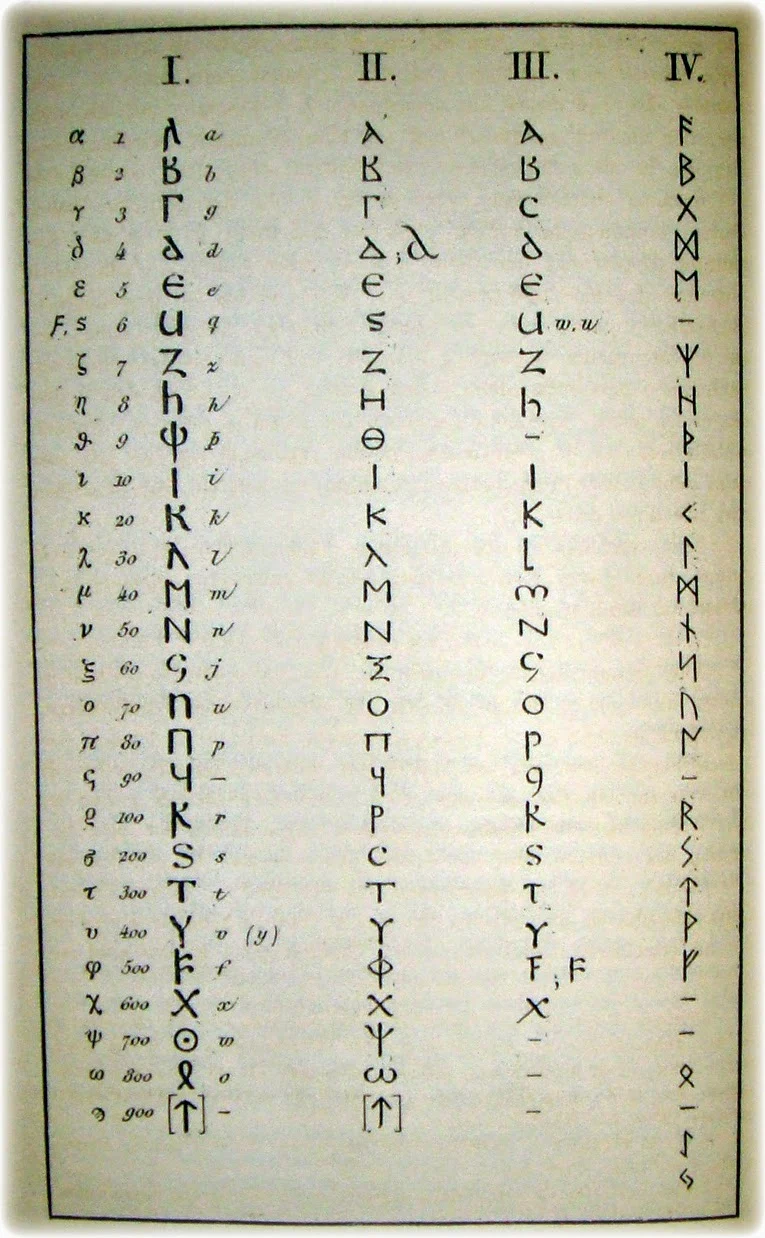 I. II. III. IV.
α 1 𐌰 a Α A ᚨ
β 2 𐌱 b Β B ᛒ
γ 3 𐌲 g Γ C ᚷ
δ 4 𐌳 d Δ, δ d ᛞ
ε 5 𐌴 e Є Є ᛖ
F, s 6 𐌵 q S U w. w –
ζ 7 𐌶 z Ζ Z ᛉ
η 8 𐌷 h Η h ᚺ
ϑ 9 𐌸 þ Θ – ᚦ
ι 10 𐌹 i Ι I ᛁ
κ 20 𐌺 k Κ K ᚲ
λ 30 𐌻 l λ L ᛚ
μ 40 𐌼 m Μ m ᛗ
ν 50 𐌽 n Ν N ᚾ
ξ 60 𐌾 j Ξ G ᛋ
ο 70 𐌿 u Ο O ᚢ
π 80 𐍀 p Π P ᛈ
ς 90 𐍁 – Ч 9 –
ϱ 100 𐍂 r Ρ R ᚱ
σ 200 𐍃 s C S ᛊ
τ 300 𐍄 t Τ T ᛏ
υ 400 𐍅 v (y) Υ Y ᚹ
φ 500 𐍆 f Φ F, F ᚠ
χ 600 𐍇 x Χ X –
ψ 700 𐍈 w Ψ – –
ω 800 𐍉 o ω – ᛟ
ϡ 900 [𐍊] – [↑] – –
ᛇ
ᛃ